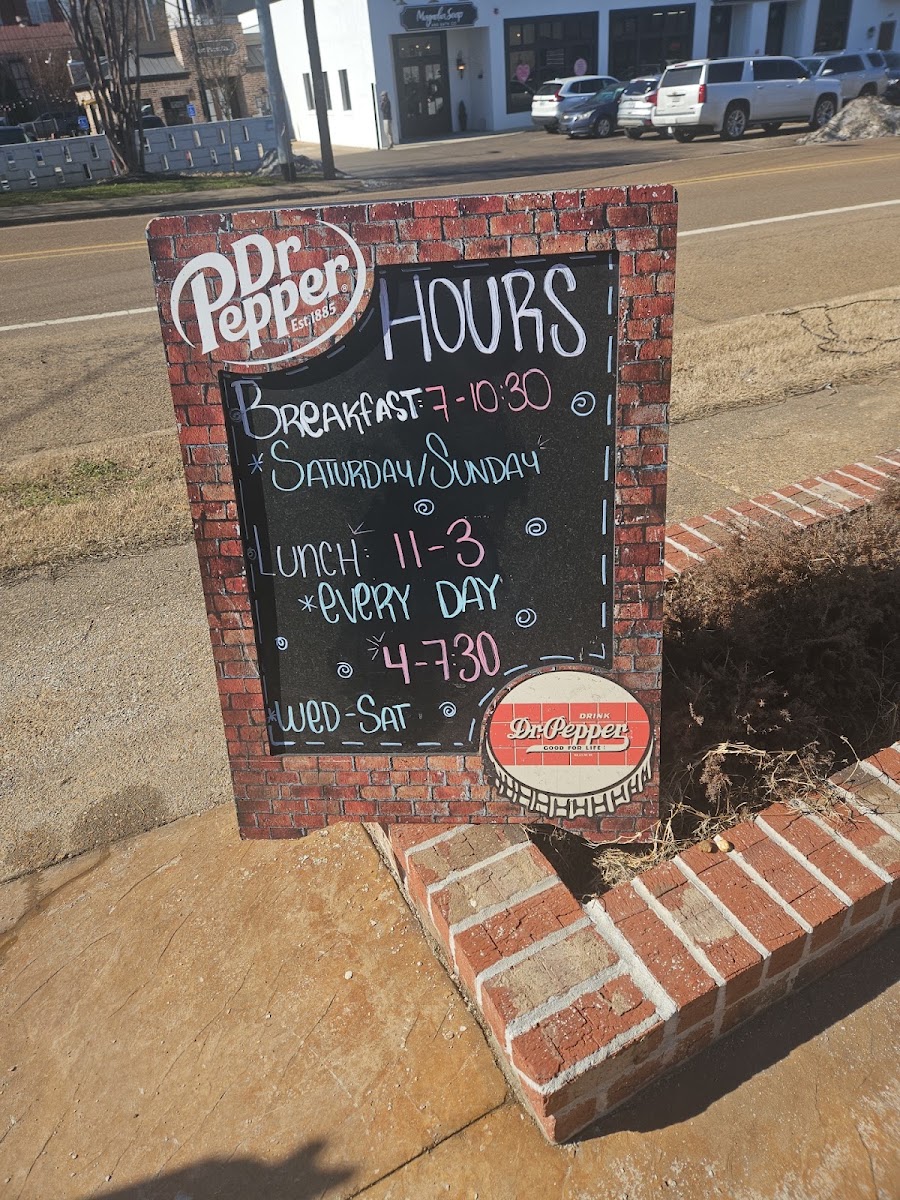 Magnolia Soap
Dr
Pepper
Est. 1885
HOURS
BREAKFAST: 7-10:30
*SATURDAY/SUNDAY
LUNCH: 11-3
*EVERY DAY
4-7:30
*WED-SAT
DRINK
Dr.Pepper
GOOD FOR LIFE!